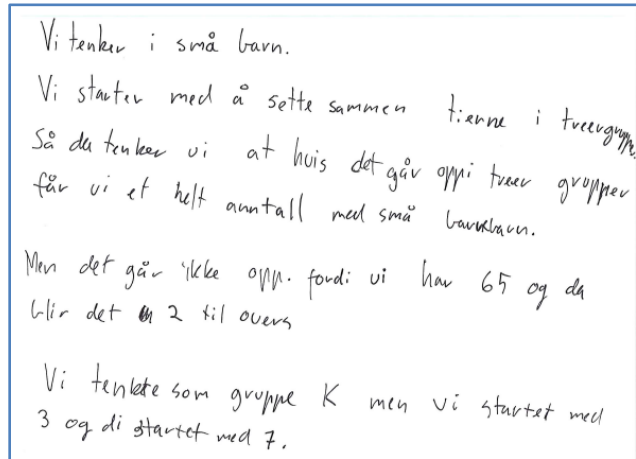 Vi tenker i små barn.
Vi starter med å sette sammen tierne i treergrupper
Så da tenker vi at hvis det går oppi treer grupper
får vi et helt anntall med små barn.
Men det går ikke opp. fordi vi har 65 og da
blir det 2 til overs
Vi tenkte som gruppe K men vi startet med
3 og di startet med 7.